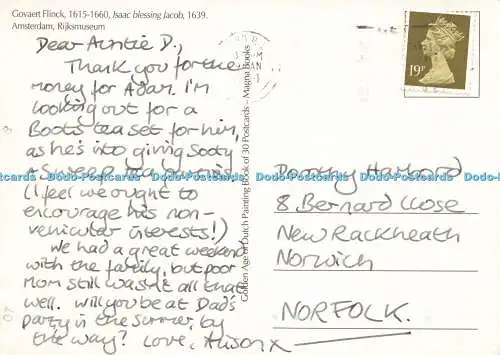 Govaert Flinck, 1615-1660, Isaac blessing Jacob, 1639.
Amsterdam, Rijksmuseum
Dear Auntie D.,
Thank you for the
money for Adam. I'm
looking out for a
Boots tea set for him,
as he's into giving Sooty
+ Sweep tea parties
(I feel we ought to
encourage his non-
vehicular interests!)
We had a great weekend
with the family, but poor
Mom still wasn't all that
well. Will you be at Dad's
party in the summer, by
the way? Love, Alison x
Golden Age of Dutch Painting Book of 30 Postcards – Magna Books
JAN
19P
Dorothy
8 Bernard Close
New Rackheath
Norwich
NORFOLK.
Dodo-Postcards Dodo-Postcards Dodo-Postcards Dodo-Postcards Dodo-Postcards